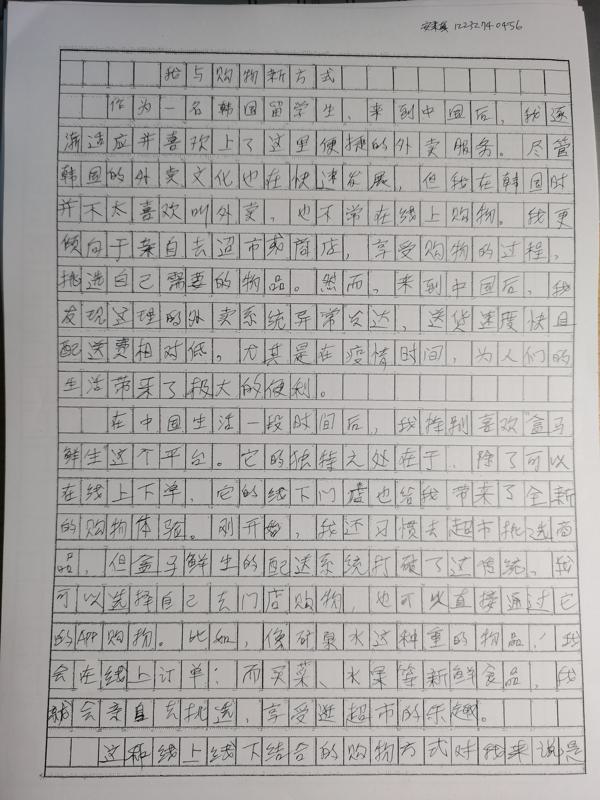 12232740456
我与购物新方式
作为一名韩国留学生，来到中国后，我逐
渐适应并喜欢上了这里便捷的外卖服务。尽管
韩国的外卖文化也在快速发展，但我在韩国时
并不太喜欢叫外卖，也不常在线上购物。我更
倾向于亲自去超市或商店，享受购物的过程，
挑选自己需要的物品。然而，来到中国后，我
发现这理的外卖系统异常发达，送货速度快且
配送费相对低。尤其是在疫情时间，为人们的
生活带来了极大的便利。
在中国生活一段时间后，我特别喜欢"盒马
鲜生"这个平台。它的独特之处在于，除了可以
在线上下单，它的线下门店也给我带来了全新
的购物体验。刚开始，我还习惯去超市挑选商
品，但盒子鲜生的配送系统打破了过传统。我
可以选择自己去门店购物，也可以直接通过它
的APP购物。比如，像矿泉水这种重的物品，我
会在线上订单；而买菜、水果等新鲜食品，我
就会亲自去挑选，享受逛超市的乐趣。
这种线上线下结合的购物方式对我来说是